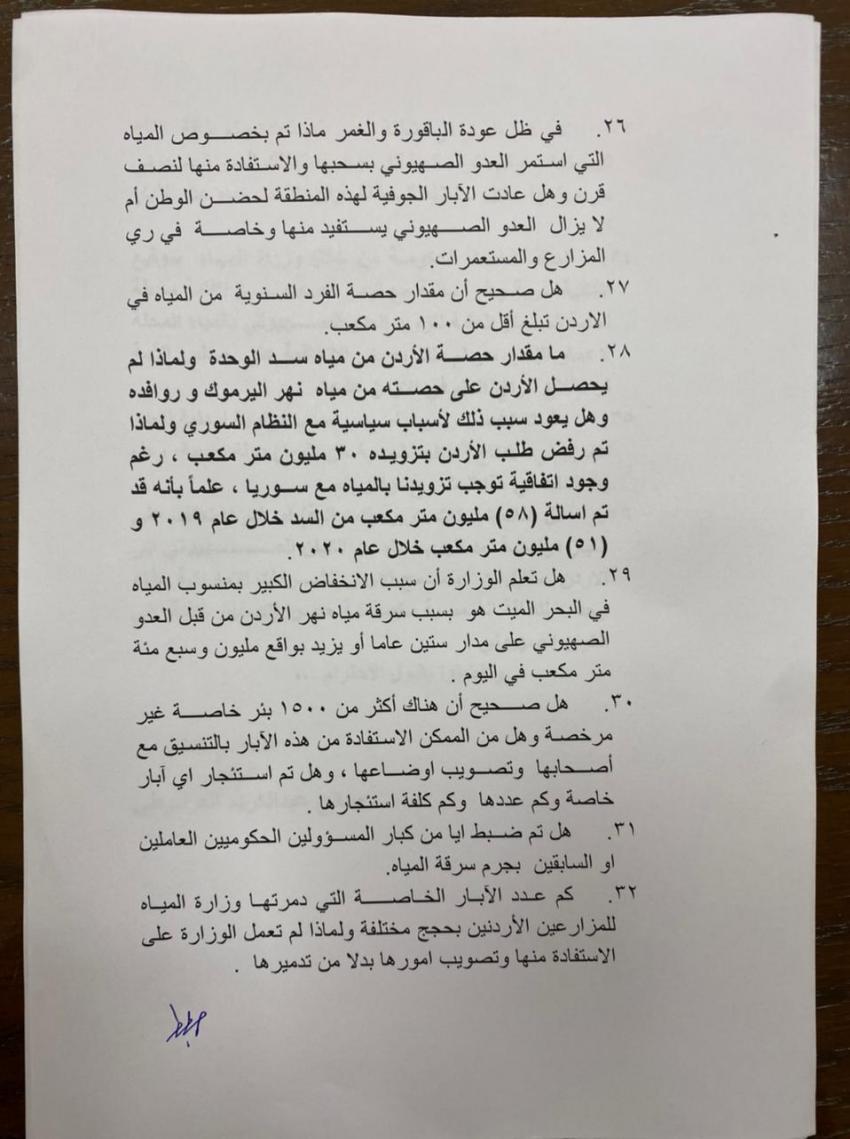 ٢٦. في ظل عودة الباقورة والغمر ماذا تم بخصوص المياه
التي استمر العدو الصهيوني بسحبها والاستفادة منها لنصف
قرن وهل عادت الآبار الجوفية لهذه المنطقة لحضن الوطن أم
لا يزال العدو الصهيوني يستفيد منها وخاصة في ري
المزارع والمستعمرات.
٢٧. هل صحيح أن مقدار حصة الفرد السنوية من المياه في
الاردن تبلغ أقل من ١٠٠ متر مكعب.
٢٨. ما مقدار حصة الأردن من مياه سد الوحدة ولماذا لم
يحصل الأردن على حصته من مياه نهر اليرموك و روافده
وهل يعود سبب ذلك لأسباب سياسية مع النظام السوري ولماذا
تم رفض طلب الأردن بتزويده ٣٠ مليون متر مكعب ، رغم
وجود اتفاقية توجب تزويدنا بالمياه مع سوريا ، علماً بأنه قد
تم اسالة (٥٨) مليون متر مكعب من السد خلال عام ٢٠١٩ و
(٥١) مليون متر مكعب خلال عام ٢٠٢٠.
٢٩. هل تعلم الوزارة أن سبب الانخفاض الكبير بمنسوب المياه
في البحر الميت هو بسبب سرقة مياه نهر الأردن من قبل العدو
الصهيوني على مدار ستين عاما أو يزيد بواقع مليون وسبع مئة
متر مكعب في اليوم .
٣٠. هل صحيح أن هناك أكثر من ١٥٠٠ بئر خاصة غير
مرخصة وهل من الممكن الاستفادة من هذه الآبار بالتنسيق مع
أصحابها وتصويب اوضاعها ، وهل تم استئجار اي آبار
خاصة وكم عددها وكم كلفة استئجارها .
٣١. هل تم ضبط ايا من كبار المسؤولين الحكوميين العاملين
او السابقين بجرم سرقة المياه.
٣٢. كم عدد الآبار الخاصة التي دمرتها وزارة المياه
للمزارعين الأردنين بحجج مختلفة ولماذا لم تعمل الوزارة على
الاستفادة منها وتصويب امورها بدلا من تدميرها .